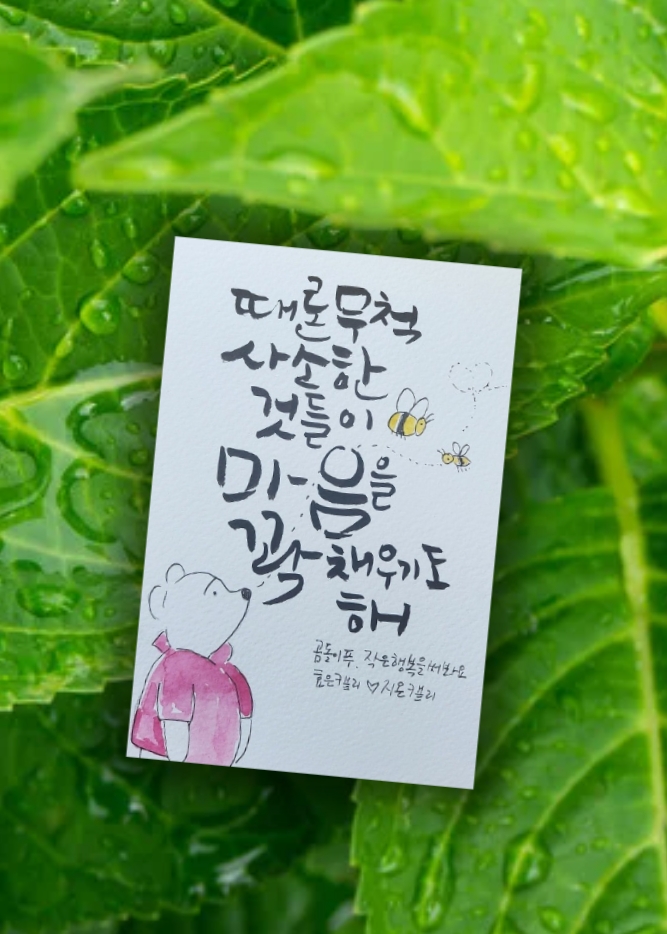 때론 무척
사소한
것들이
마음을
꽉 채우기도
해
곰돌이푸, 작은행복을써봐요
효은캘리 ♡ 지온캘리